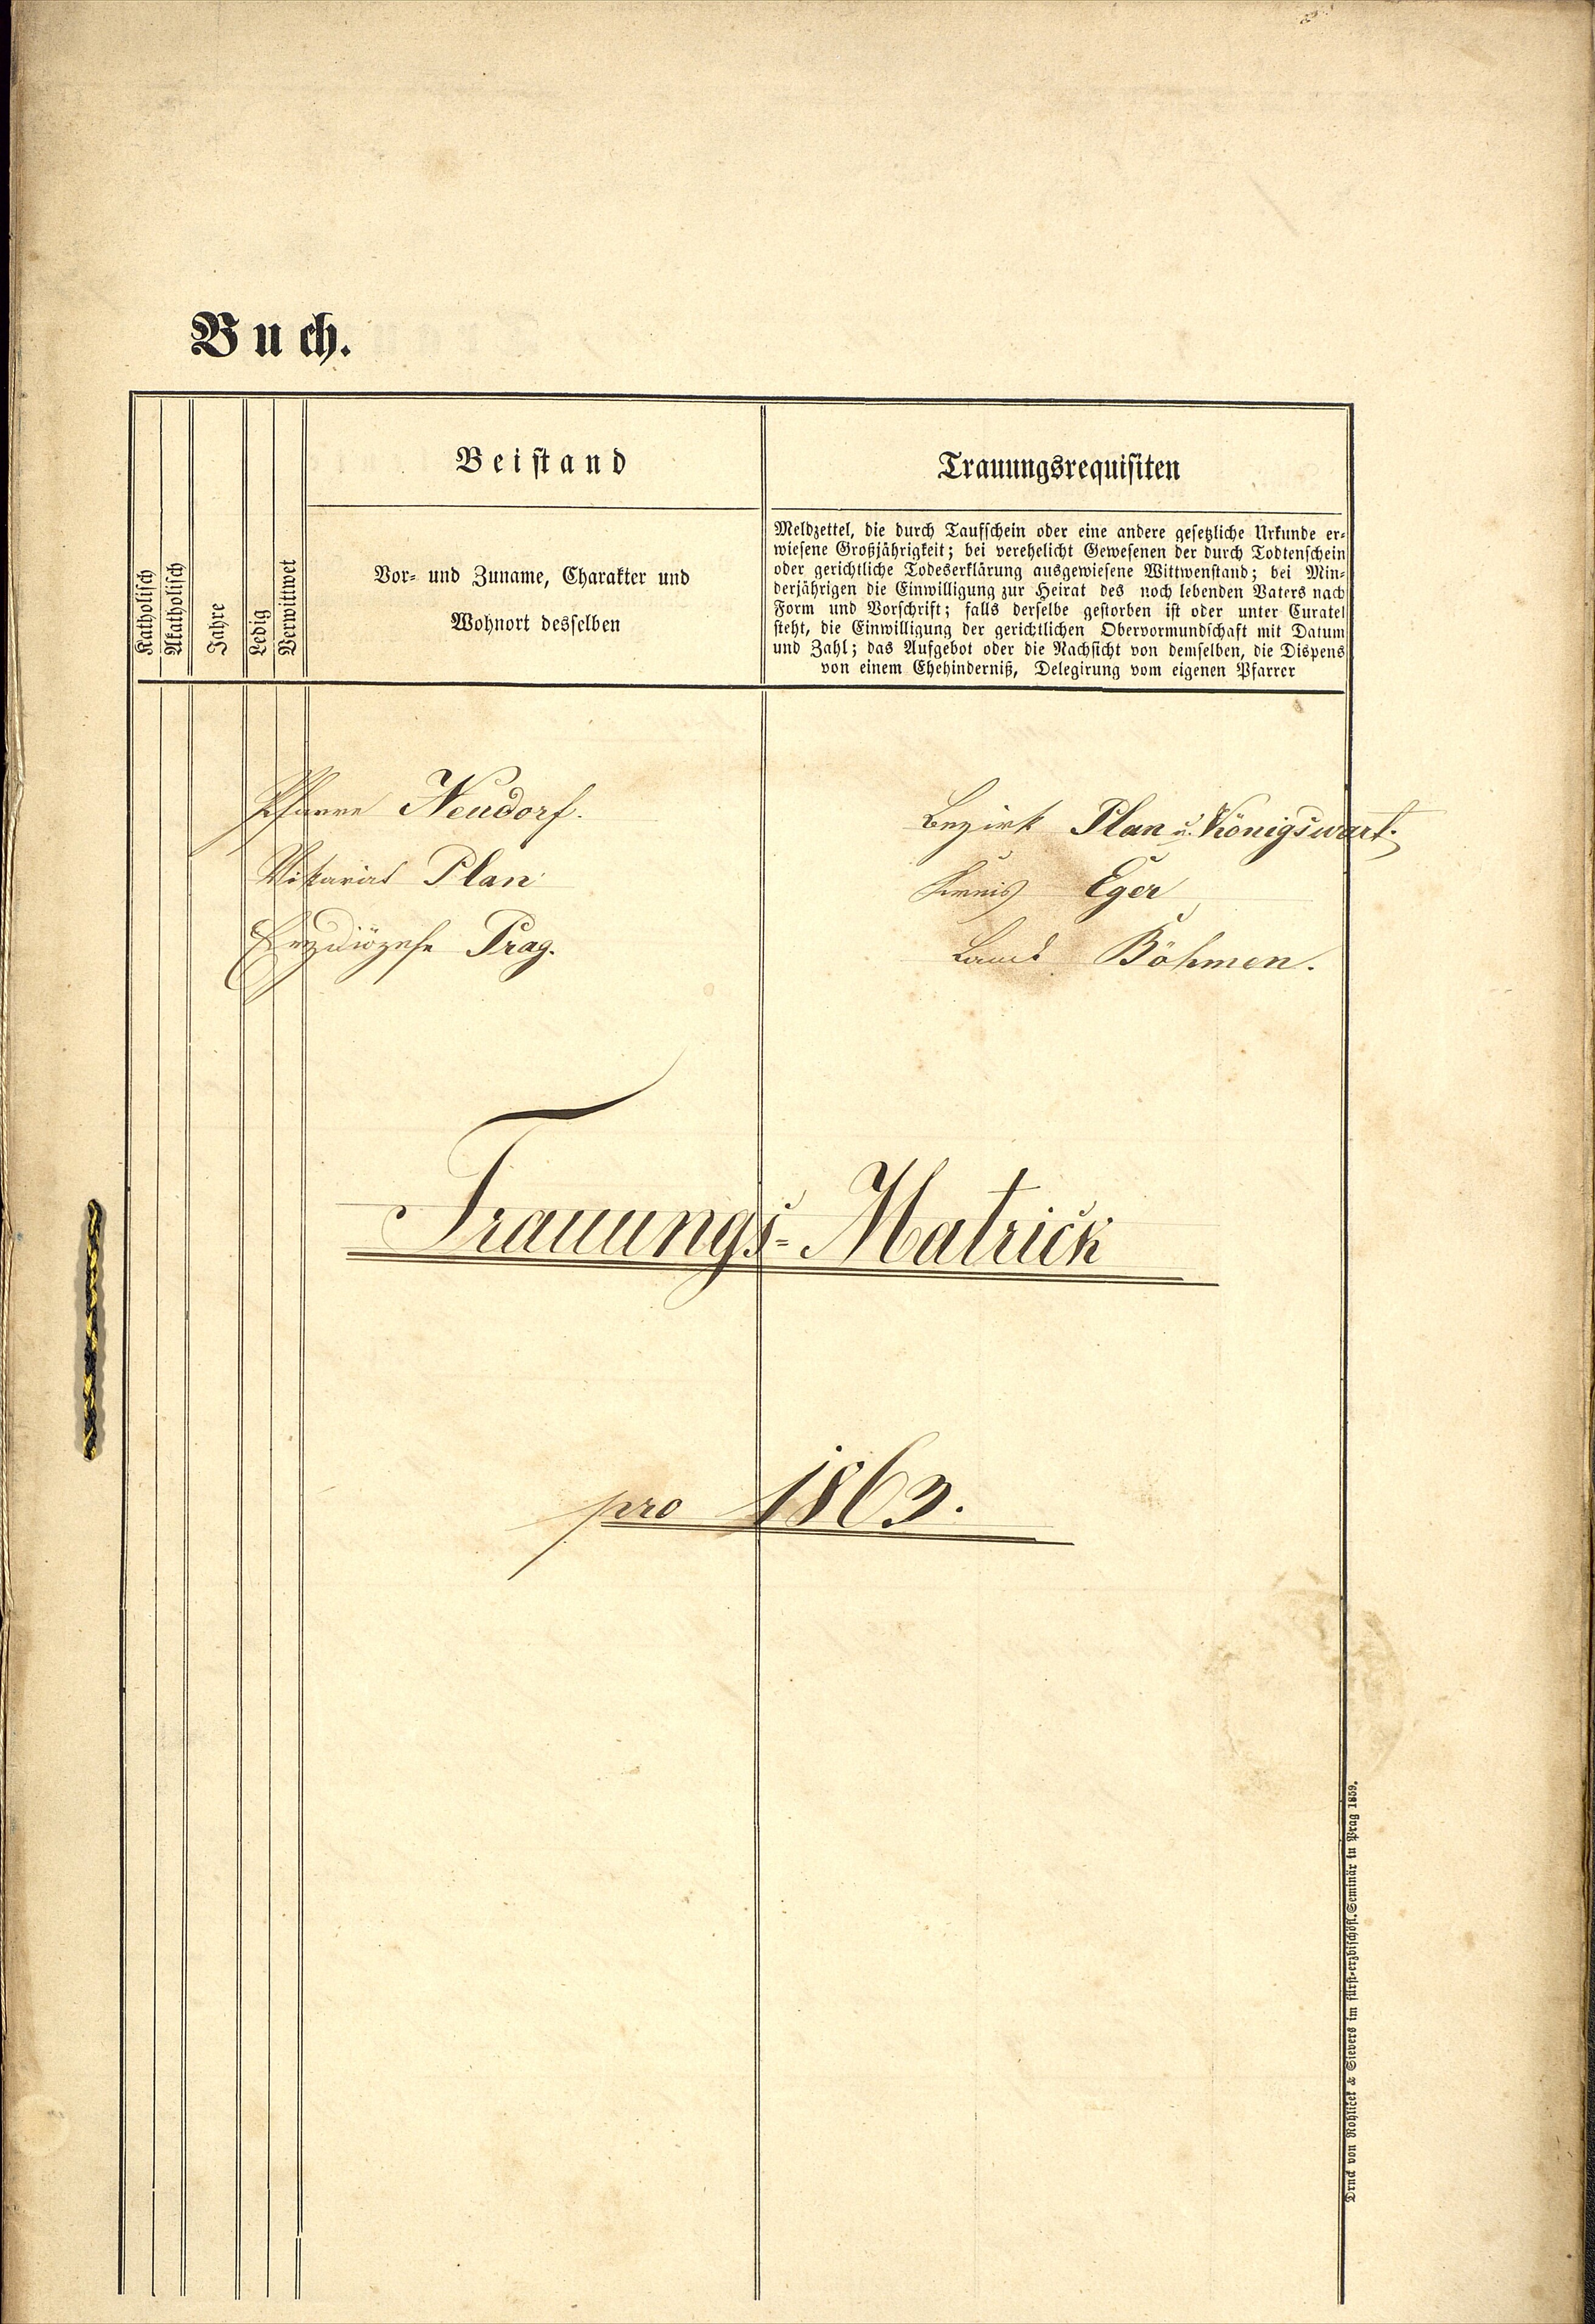 Buch.
Katholisch
Akatholisch
Jahre
Ledig
Verwittwet
Beistand
Vor- und Zuname, Charakter und
Wohnort desselben
Trauungsrequisiten
Meldzettel, die durch Taufschein oder eine andere gesetzliche Urkunde er-
wiesene Großjährigkeit; bei verehelicht Gewesenen der durch Todtenschein
oder gerichtliche Todeserklärung ausgewiesene Wittwenstand; bei Min-
derjährigen die Einwilligung zur Heirat des noch lebenden Vaters nach
Form und Vorschrift; falls derselbe gestorben ist oder unter Curatel
steht, die Einwilligung der gerichtlichen Obervormundschaft mit Datum
und Zahl; das Aufgebot oder die Nachsicht von demselben, die Dispens
von einem Ehehinderniß, Delegirung vom eigenen Pfarrer
Pfarre Neudorf.
Vikariat Plan
Erzdiözese Prag.
Bezirk Plan u. Königswart.
Kreis Eger
Land Böhmen.
Trauungs-Matrick
pro 1863.
Druck von Rohlicek & Sievers im fürst-erzbischöfl. Seminär in Prag 1859.